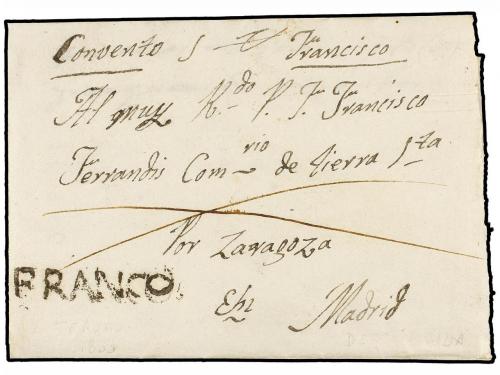 Convento S Francisco
Al muy R.do P. Fr Francisco
Ferrandis Com.rio de tierra Sta
Por Zaragoza
FRANCO.
En Madrid